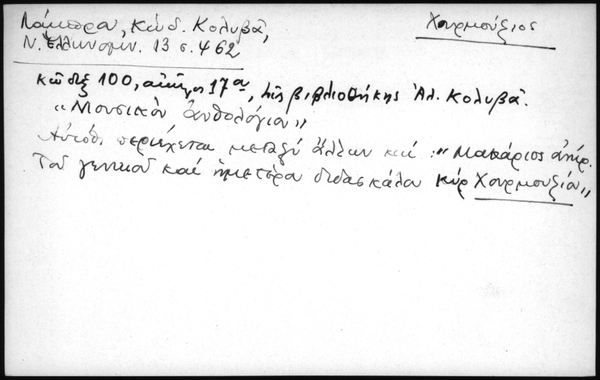 Λάμπρου, Κώδ. Κολυβᾶ,
Ν. Ἑλληνομν. 13 σ. 462
Χουρμούζιος
Κῶδιξ 100, αἰῶνος 17ου, τῆς βιβλιοθήκης Ἀλ. Κολυβᾶ.
"Μουσικὸν ἀνθολόγιον"
Αὐτόθι περιέχεται μεταξὺ ἄλλων καί: "Μακάριος ἀνὴρ.
Τοῦ γενικοῦ καὶ ἡμετέρου διδασκάλου κὺρ Χουρμουζίου"